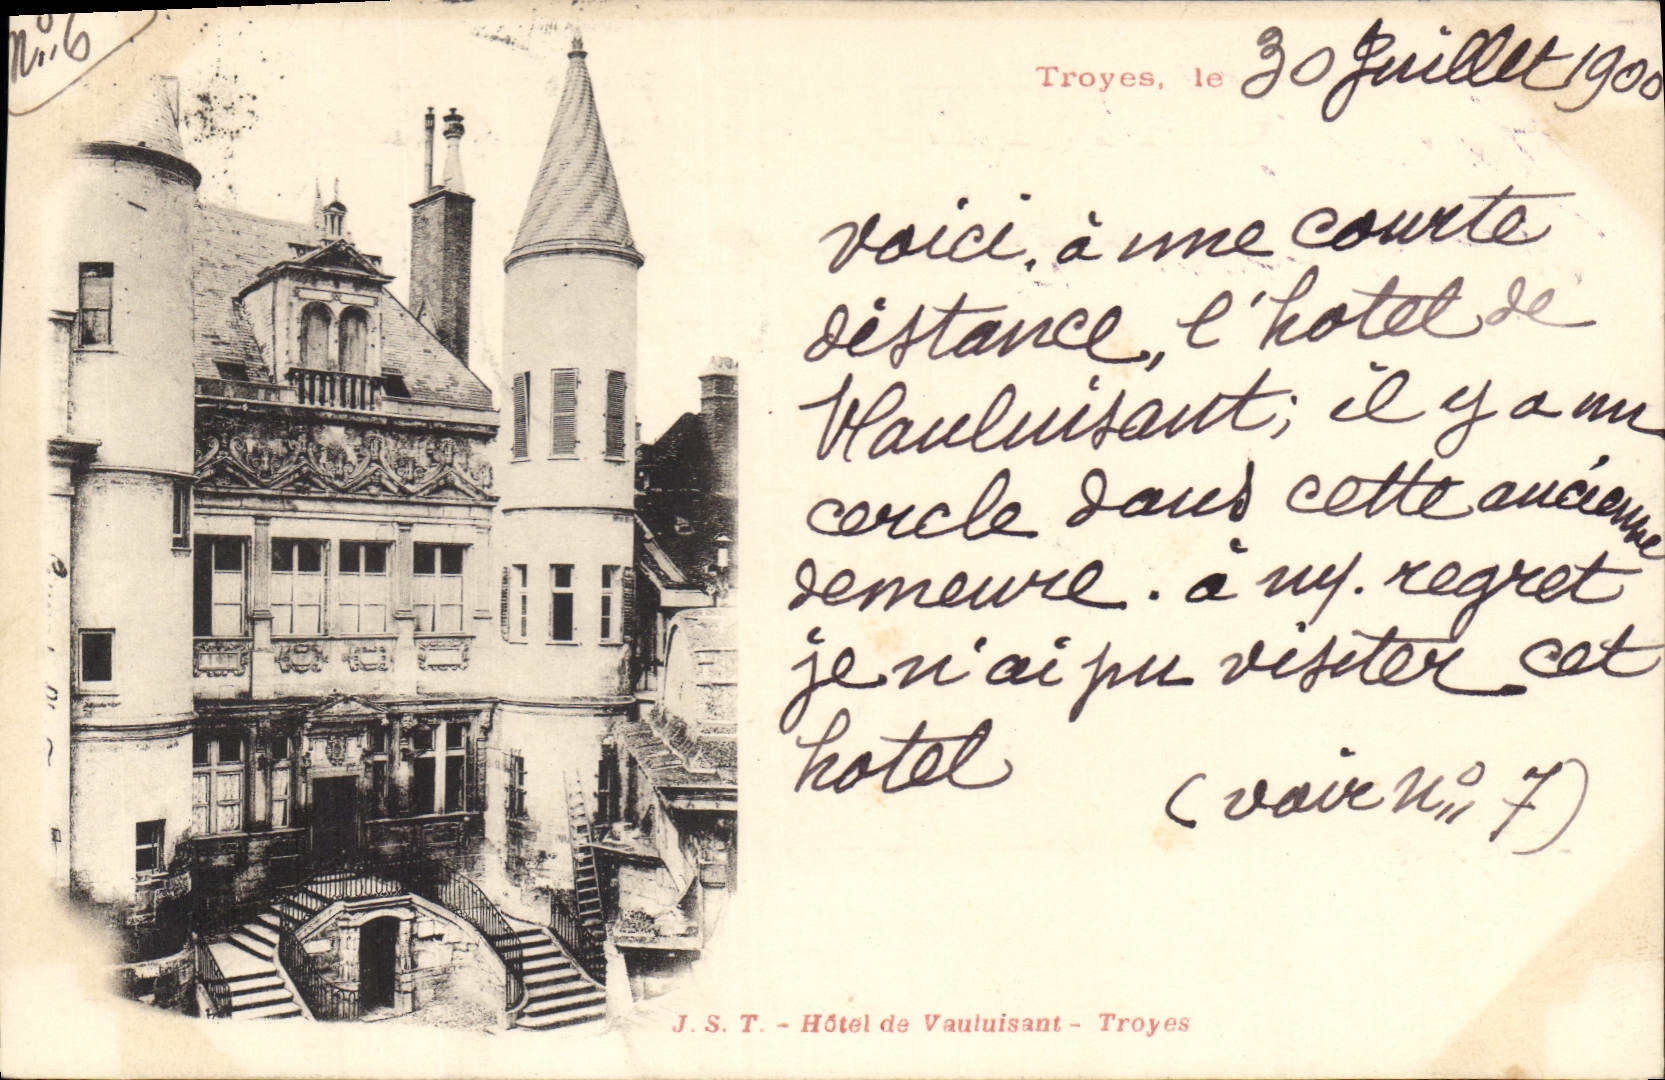 N° 6
Troyes, le 30 Juillet 1900
voici, à une courte
distance, l'hotel de
Vauluisant; il y a un
cercle dans cette ancienne
demeure. à my. regret
je n'ai pu visiter cet
hotel
(voir N° 7)
J. S. T. - Hôtel de Vauluisant - Troyes